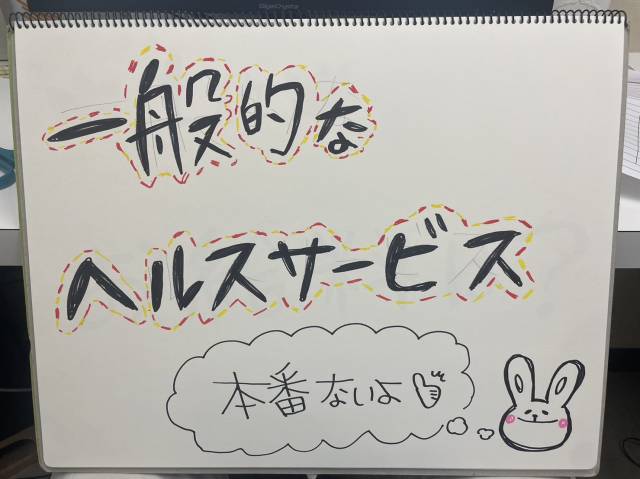 一般的な
ヘルスサービス
本番ないよ